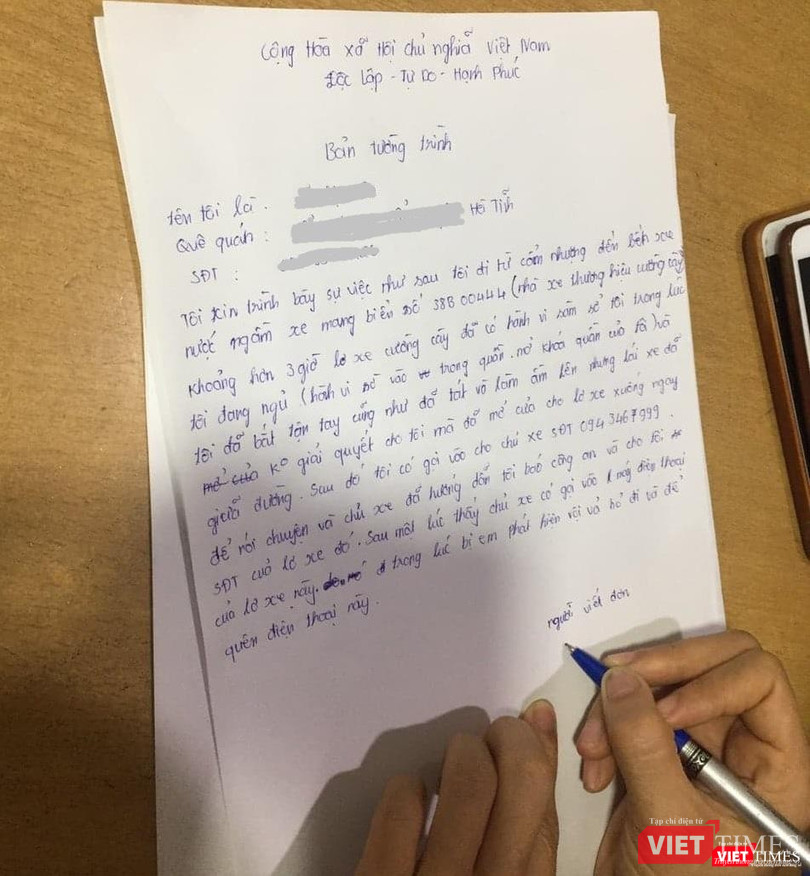 Cộng Hòa xã Hội chủ nghĩa Việt Nam
Độc Lập - Tự Do - Hạnh Phúc
Bản tường trình
Tên tôi là :
Quê quán : Hà Tĩnh
SĐT :
Tôi xin trình bày sự việc như sau tôi đi từ cẩm nhượng đến bến xe
nước ngầm xe mang biển số 38B 00444 (nhà xe thương hiệu cường cây)
Khoảng hơn 3 giờ lơ xe cường cây đã có hành vi sàm sở tôi trong lúc
tôi đang ngủ (hành vi sờ vào trong quần. mở khoá quần của tôi) và
tôi đã bắt tận tay cũng như đã tát và làm ầm lên nhưng lái xe đã
ko giải quyết cho tôi mà đã mở cửa cho lơ xe xuống ngay
giữa đường. Sau đó tôi có gọi vào cho chủ xe SĐT 0943467999.
để nói chuyện và chủ xe đã hướng dẫn tôi báo công an và cho tôi
SĐT của lơ xe đó. Sau một lúc thấy chủ xe có gọi vào 1 máy điện thoại
của lơ xe này. trong lúc bị em phát hiện vội và bỏ đi và để
quên điện thoại này.
người viết đơn
Tạp chí điện tử
VIET TIMES
Tạp chí điện tử
VIET TIMES